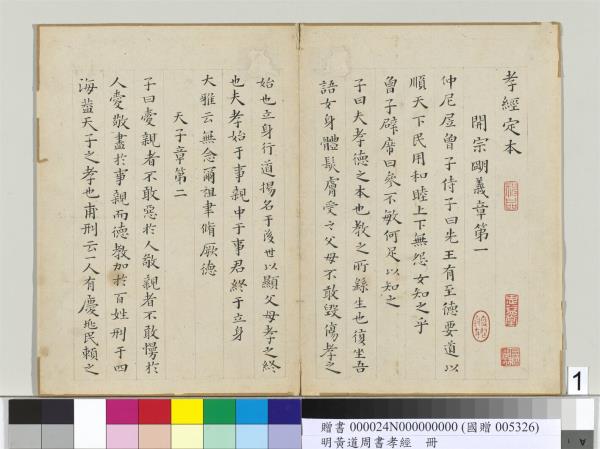 孝經定本
開宗明義章第一
仲尼凥曾子侍子曰先王有至德要道以
順天下民用和睦上下無怨女知之乎
曾子辟席曰參不敏何足以知之
子曰夫孝德之本也教之所繇生也復坐吾
語女身體髮膚受之父母不敢毀傷孝之
始也立身行道揚名于後世以顯父母孝之終
也夫孝始于事親中于事君終于立身
大雅云無念爾祖聿脩厥德
天子章第二
子曰愛親者不敢惡於人敬親者不敢慢於
人愛敬盡於事親而德教加於百姓刑于四
海蓋天子之孝也甫刑云一人有慶兆民賴之
1
贈書 000024N000000000 (國贈 005326)
明黃道周書孝經 冊